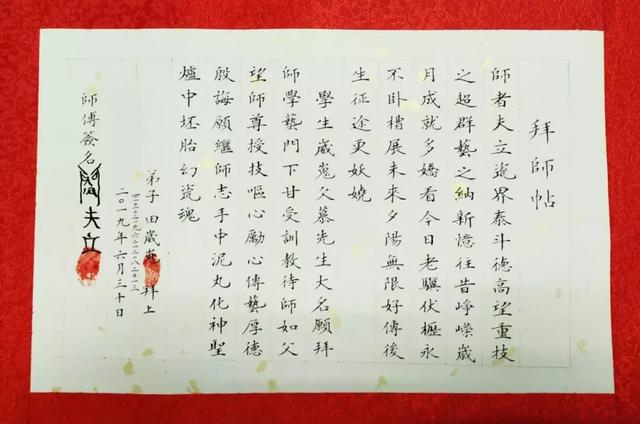 拜師帖
師者夫立瓷界泰斗德高望重技
之超群藝之納新憶往昔崢嶸歲
月成就多嬌看今日老驥伏櫪永
不卧槽展未來夕陽無限好傳後
生征途更妖嬈
學生歲嵬久慕先生大名願拜
師學藝門下甘受訓教待師如父
望師尊授技嘔心勵心傳藝厚德
殷誨願繼師志手中泥丸化神聖
爐中坯胎幻瓷魂
弟子田歲嵬拜上
二〇一九年六月三十日
師傅簽名閻夫立